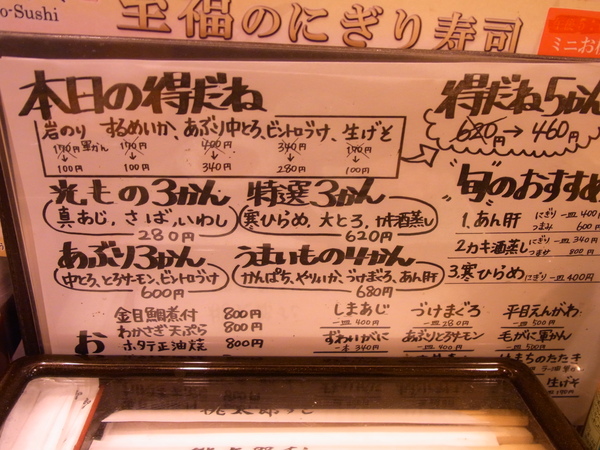 o-Sushi
至福のにぎり寿司
ミニお
本日の得だね
岩のり するめいか、あぶり中とろ、ビントロづけ、生げそ
190円軍かん 190円 400円 340円 190円
100円 100円 340円 280円 100円
得だね5かん
620円→460円
光もの3かん
真あじ、さば、いわし
280円
特選3かん
寒ひらめ、大とろ、カキ酒蒸し
620円
あぶり3かん
中とろ、とろサーモン、ビントロづけ
600円
うまいもの4かん
かんぱち、やりいか、づけまぐろ、あん肝
680円
"旬"のおすすめ
1.あん肝 にぎり 一皿 400
つまみ 600
2.カキ酒蒸し にぎり 一皿 340
つまみ 800円
3.寒ひらめ にぎり 一皿 400円
お
金目鯛煮付 800円
わかさぎ天ぷら 800円
ホタテ正油焼 800円
しまあじ
一皿 400円
ずわいがに
一本 340円
づけまぐろ
一皿 280円
あぶりとろサーモン
一皿 400円
平目えんがわ
一皿 500円
毛がに軍かん
一皿 500円
はまちのたたき
生げそ